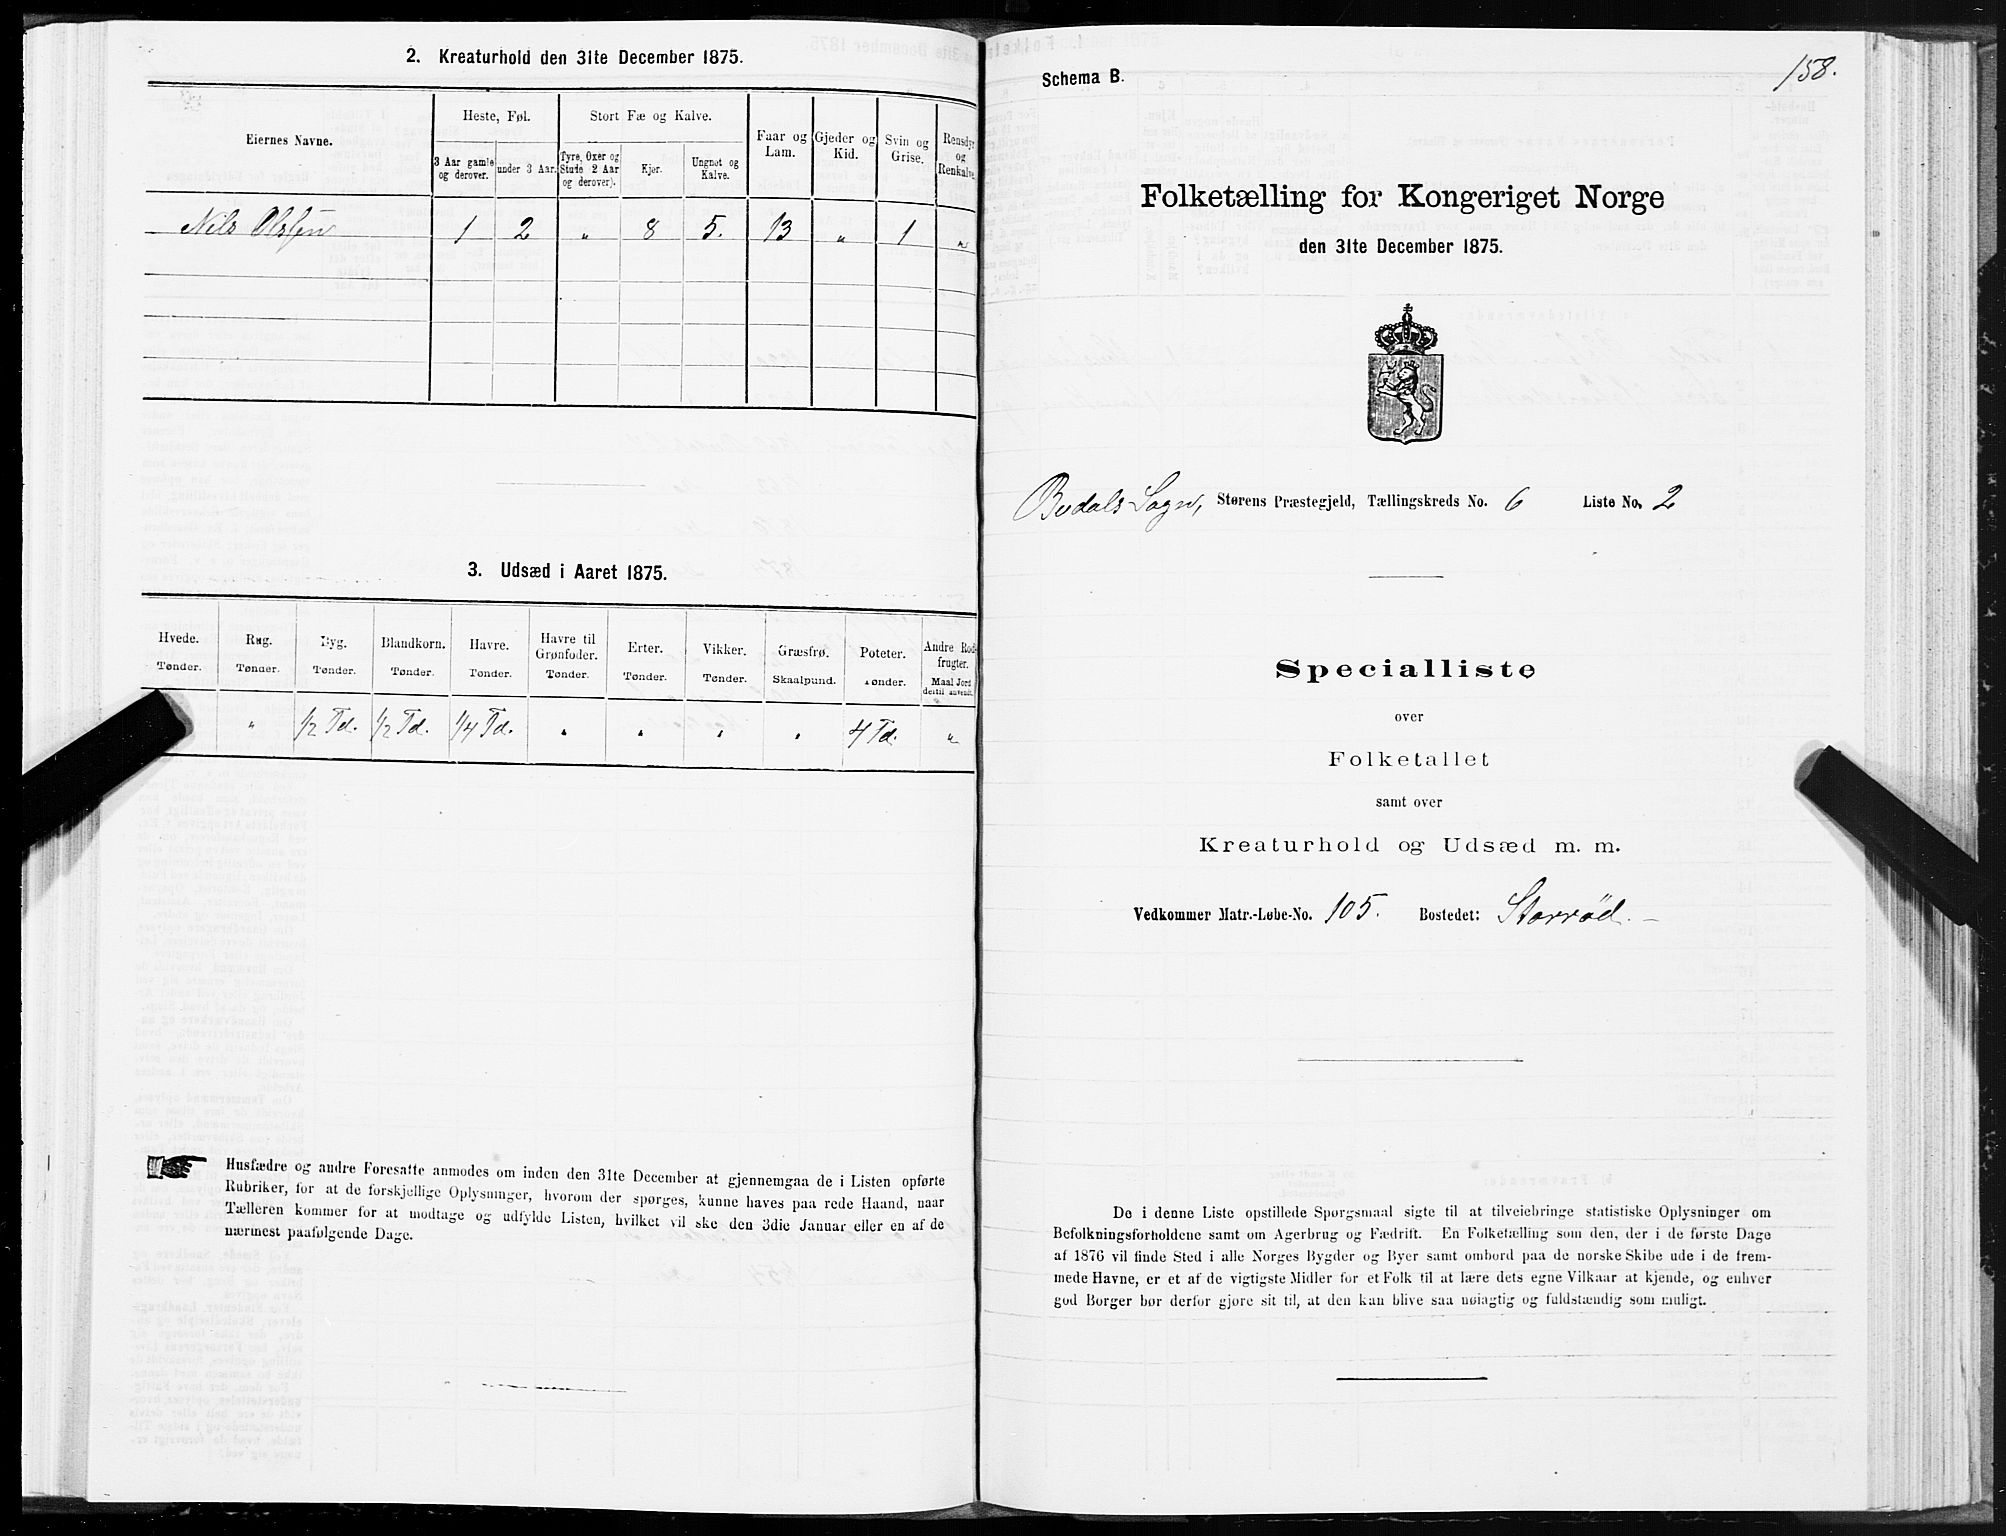 2. Kreaturhold den 31te December 1875.
Eiernes Navne.
Heste, Føl.
Stort Fæ og Kalve.
Faar og Lam.
Gjeder og Kid.
Svin og Grise.
Rensdyr og Renkalve.
3 Aar gamle og derover.
under 3 Aar.
Tyre, Oxer og Stude 2 Aar og derover).
Kjør.
Ungnøt og Kalve.
Nils Olsen 1 2 " 8 5. 13 " 1 "
3. Udsæd i Aaret 1875.
Hvede. Rug. Byg. Blandkorn. Havre. Havre til Grønfoder. Erter. Vikker. Græsfrø. Poteter. Andre Rodfrugter.
Tønder. Tønder. Tønder. Tønder. Tønder. Tønder. Tønder. Tønder. Skaalpund. Tønder. Maal Jord dertil anvendt.
" 1/2 Td. 1/2 Td. 1/4 Td. " " " " 4 Td. "
Husfædre og andre Foresatte anmodes om inden den 31te December at gjennemgaa de i Listen opførte
Rubriker, for at de forskjellige Oplysninger, hvorom der spørges, kunne haves paa rede Haand, naar
Tælleren kommer for at modtage og udfylde Listen, hvilket vil ske den 3die Januar eller en af de
nærmest paafølgende Dage.
158.
Schema B.
Folketælling for Kongeriget Norge
den 31te December 1875.
Budals Sogn, Størens Præstegjeld, Tællingskreds No. 6 Liste No. 2
Specialliste
over
Folketallet
samt over
Kreaturhold og Udsæd m. m.
Vedkommer Matr.-Løbe-No. 105. Bostedet: Storrød.
De i denne Liste opstillede Spørgsmaal sigte til at tilveiebringe statistiske Oplysninger om
Befolkningsforholdene samt om Agerbrug og Fædrift. En Folketælling som den, der i de første Dage
af 1876 vil finde Sted i alle Norges Bygder og Byer samt ombord paa de norske Skibe ude i de frem-
mede Havne, er et af de vigtigste Midler for et Folk til at lære dets egne Vilkaar at kjende, og enhver
god Borger bør derfor gjøre sit til, at den kan blive saa nøiagtig og fuldstændig som muligt.